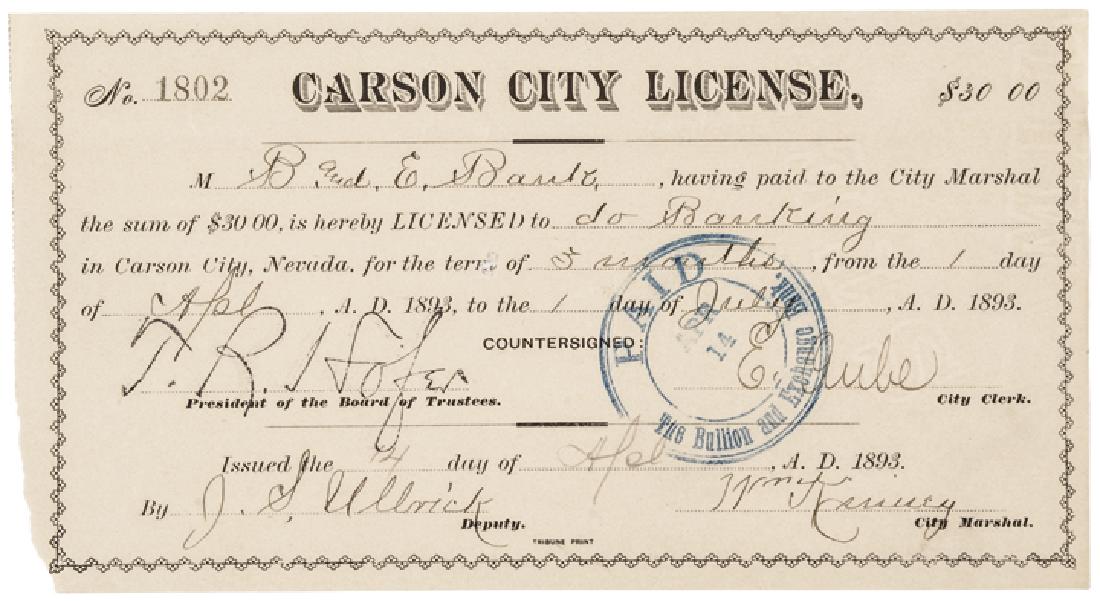 No. 1802 CARSON CITY LICENSE. $30 00
M B and. E. Bank, , having paid to the City Marshal
the sum of $30 00, is hereby LICENSED to do Banking
in Carson City, Nevada, for the term of 3 months , from the 1 day
of Apl , A. D. 1893, to the 1 day of July , A. D. 1893.
COUNTERSIGNED:
T. R. Hofer
President of the Board of Trustees. City Clerk.
PAID
APR
14
The Bullion and Exchange Bank.
Issued the 14 day of Apl , A. D. 1893.
By J. S. Ullrick Wm Kinney
Deputy. City Marshal.
TRIBUNE PRINT